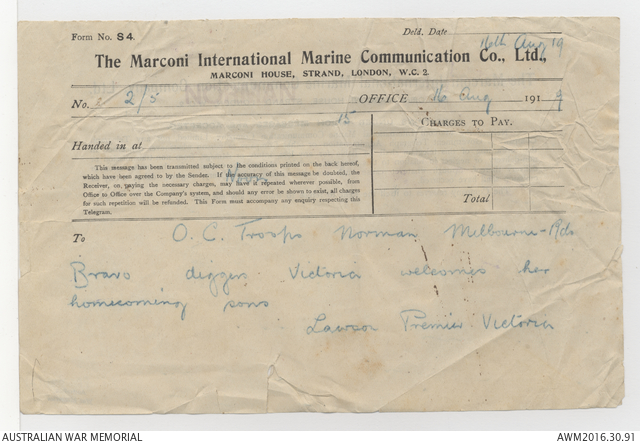 Form No. S 4.
Deld. Date 16th Aug 19
The Marconi International Marine Communication Co., Ltd.,
MARCONI HOUSE, STRAND, LONDON, W.C. 2.
No. 2 2/5 OFFICE 16 Aug 1919
15 CHARGES TO PAY.
Handed in at
This message has been transmitted subject to the conditions printed on the back hereof,
which have been agreed to by the Sender. If the accuracy of this message be doubted, the
Receiver, on paying the necessary charges, may have it repeated wherever possible, from
Office to Office over the Company's system, and should any error be shown to exist, all charges
for such repetition will be refunded. This Form must accompany any enquiry respecting this
Telegram.
Total
To O.C. Troops Norman Melbourne-
Bravo diggers Victoria welcomes her
homecoming sons
Lawson Premier Victoria
AUSTRALIAN WAR MEMORIAL
AWM2016.30.91